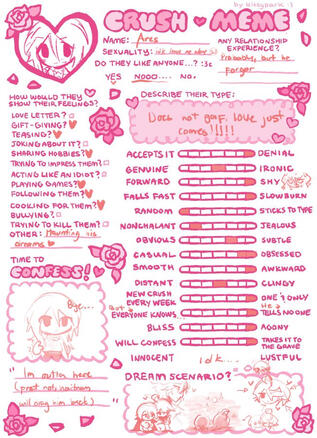 by kittypark :3
CRUSH ♥ MEME
NAME: Ares
SEXUALITY: idk love no label :3
ANY RELATIONSHIP EXPERIENCE?
Probably, but he forgor
DO THEY LIKE ANYONE...? :3c
YES NOOO.... NO.
HOW WOULD THEY
SHOW THEIR FEELINGS?
LOVE LETTER?
GIFT-GIVING?
TEASING?
JOKING ABOUT IT?
SHARING HOBBIES?
TRYING TO IMPRESS THEM?
ACTING LIKE AN IDIOT?
PLAYING GAMES?
FOLLOWING THEM?
COOKING FOR THEM?
BULLYING?
TRYING TO KILL THEM?
OTHER: Haunting his
dreams
DESCRIBE THEIR TYPE:
Does not gaf, love just
comes!!!!!
ACCEPTS IT DENIAL
GENUINE IRONIC
FORWARD SHY
FALLS FAST SLOWBURN
RANDOM STICKS TO TYPE
NONCHALANT JEALOUS
OBVIOUS SUBTLE
CASUAL OBSESSED
SMOOTH AWKWARD
DISTANT CLINGY
NEW CRUSH EVERY WEEK ONE & ONLY
But EVERYONE KNOWS He TELLS NO ONE
BLISS AGONY
WILL CONFESS TAKES IT TO THE GRAVE
INNOCENT idk... LUSTFUL
TIME TO
CONFESS!
Bye...
"Im outta here

will bring him back)"
DREAM SCENARIO?